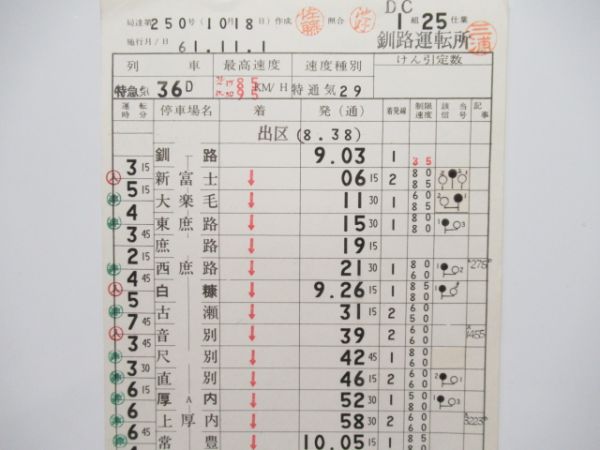 DC
局達第250号(10月18日)作成 佐藤 照合 1組25仕業 三浦
施行月/日 61.11.1 釧路運転所
列車 最高速度 速度種別 けん引定数
特急気36D 85 95 KM/H 特通気29
運転時分 停車場名 着 発(通) 着発線 制限速度 該当信号 記事
出区(8.38)
釧路 9.03 1 85
3 15
新富士 ↓ 06 15 2 80 85
入 5 15
大楽毛 ↓ 11 30 1 60 85
4
東庶路 ↓ 15 30 1 80 85 3
3 45
庶路 ↓ 19 15
2 15
西庶路 ↓ 21 30 1 80 60 2 276
4 45
白糠 ↓ 9.26 15 1 85 80
入 5
古瀬 ↓ 31 15 2 65 60
7 45
音別 ↓ 39 2 60 1455
入 3 45
尺別 ↓ 42 45 1 60 80
3 30
直別 ↓ 46 15 2 60 80 2 1
6 15
厚A内 ↓ 52 30 1 50 80 3
6
上厚内 ↓ 58 30 2 60 80 3223
6 45
常豊 ↓ 10.05 15 1 85 80